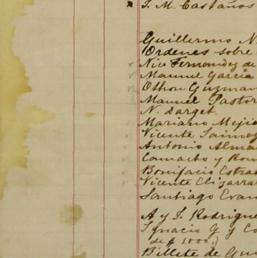 J. M. Castaños
Guillermo N
Ordenes sobre
Nic Fernandez de
Manuel Garcia
Othon Guzman
Manuel Pastor
N. Sarget
Mariano Mejia
Vicente
Antonio Alma
Camacho y Rom
Bonifacio Estra
Vicente Elizarra
Santiago Evan
A y J. Rodrigue
Ignacio G. y Co
de $ 1000.)
Billete de Gu